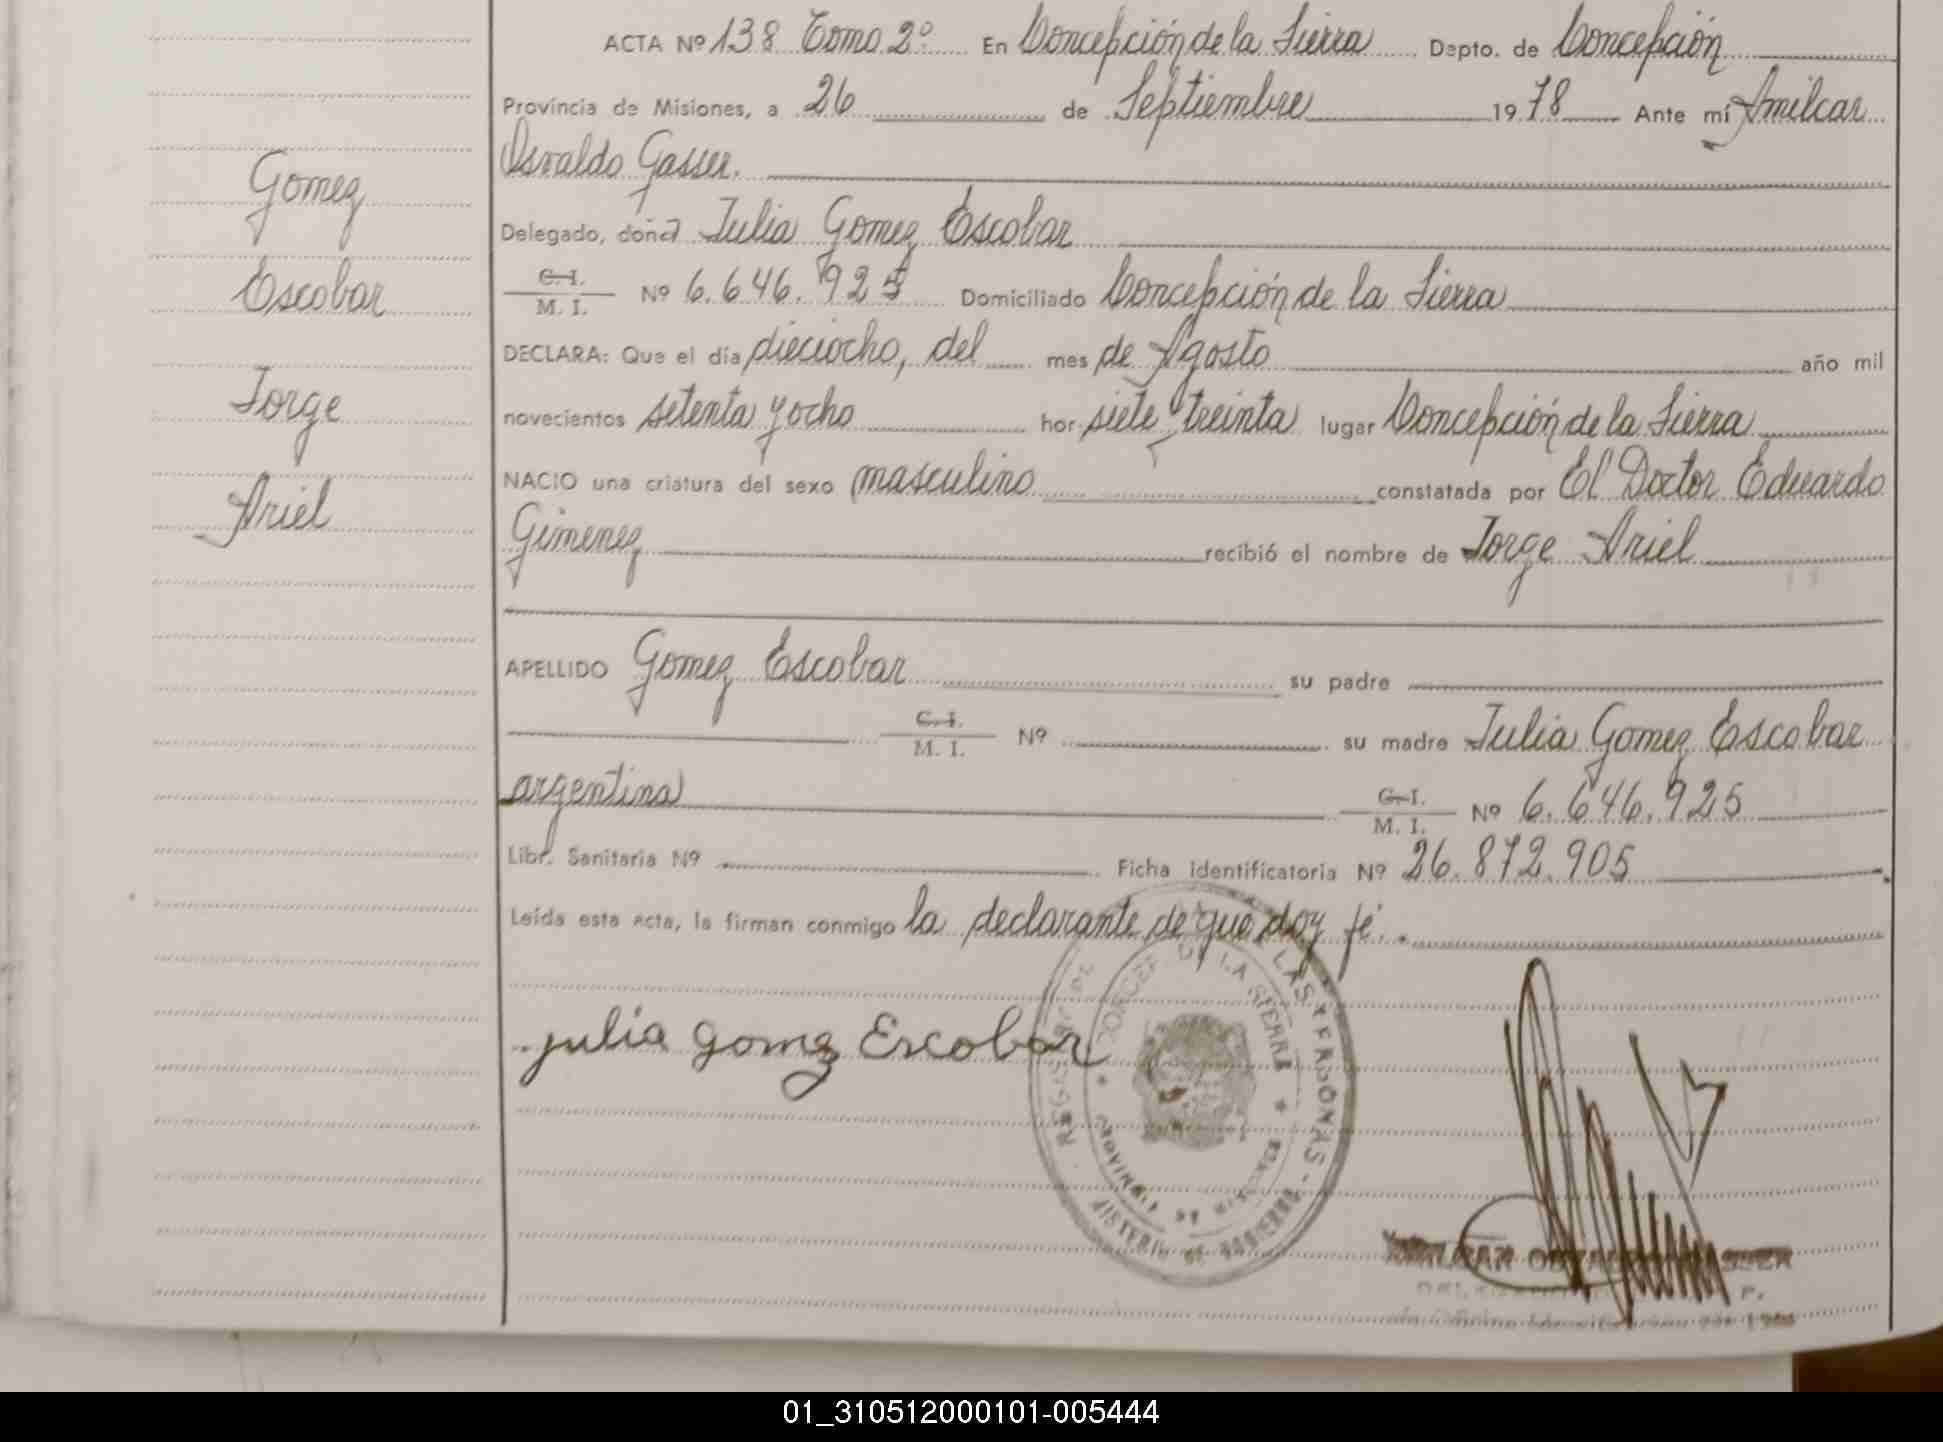 ACTA Nº 138 Tomo 2º En Concepción de la Sierra Depto. de Concepción
Provincia de Misiones, a 26 de Septiembre 1978 Ante mí Amilcar
Osvaldo Gasser.
Delegado, doña Julia Gomez Escobar
C. I.
M. I. Nº 6.646.925 Domiciliado Concepción de la Sierra
DECLARA: Que el día dieciocho, del mes de Agosto año mil
novecientos setenta y ocho hor siete y treinta lugar Concepción de la Sierra
NACIO una criatura del sexo masculino constatada por El Doctor Eduardo
Gimenez recibió el nombre de Jorge Ariel
APELLIDO Gomez Escobar su padre
C. I.
M. I. Nº su madre Julia Gomez Escobar
argentina C. I.
M. I. Nº 6.646.925
Libr. Sanitaria Nº Ficha Identificatoria Nº 26.872.905
Leída esta acta, la firman conmigo la declarante de que doy fé.
Gomez
Escobar
Jorge
Ariel
julia gomez Escobar
REGISTRO DE LAS PERSONAS
CONCEP. DE LA SIERRA
PROVINCIA DE MISIONES
MINISTERIO DE GOBIERNO
AMILCAR OSVALDO GASSER
01_310512000101-005444